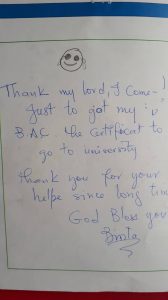 Thank my lord, I come-!
Just to got my
B.A.C the certificat to
go to university
thank you for your
helpe since long time
God Bless you